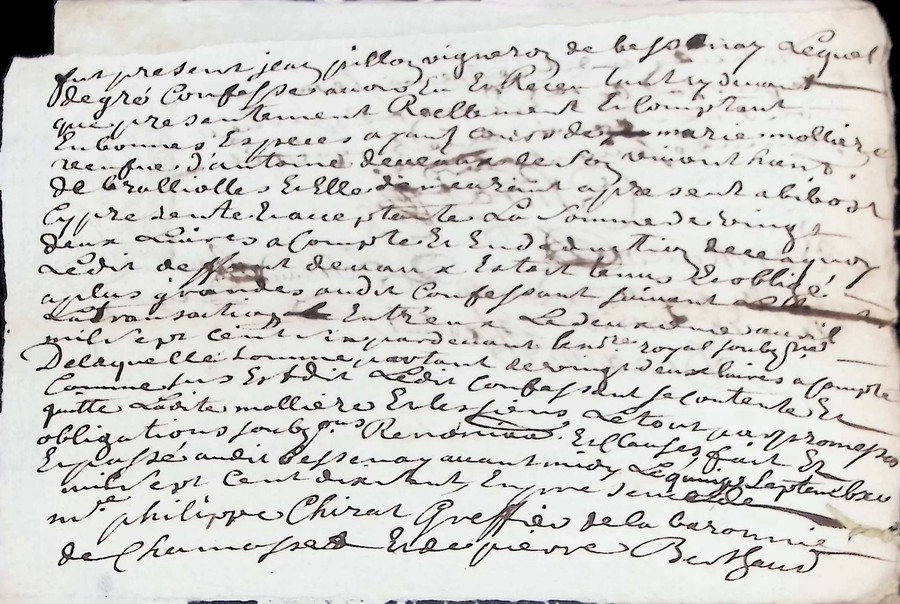 fut present jean pillon vigneron de bessenay Lequel
degré Confesse avoir Eu Et Receu tantydevant
que presentement Reellement Et Comptant
En bonnes Especes ayant cours de marie mollière
veufue d'antoine deveaux de son vivant hant
de brulliolles Et Elle demeurant apresent a bibost
Cy presente Et acceptante La Somme de vingt
deux Livres a Compte Et En deduction de ce a quoy
Ledit deffunt deveaux Estoit tenus Et obligé
a plus grandes audit Confessant suivant
La transaction Entr'eux Le deuxieme avril
mil sept Cent six pardevant le no.re royal soubzigné
De laquelle somme portant de vingt deux Livres a compte
Comme sus Est dit Ledit Confessant se contente Et
quitte Ladite mollière Et les siens Le tout par promesses
obligations soubz.ons Renon.on Et Clauses fait Et
Et passé audit bessenay avant midy Le quinze Septembre
mil sept Cent dix Estant En presence de
m.re philippe Chirat Greffier de la baronnie
de Chamosset Et de pierre Berthaud